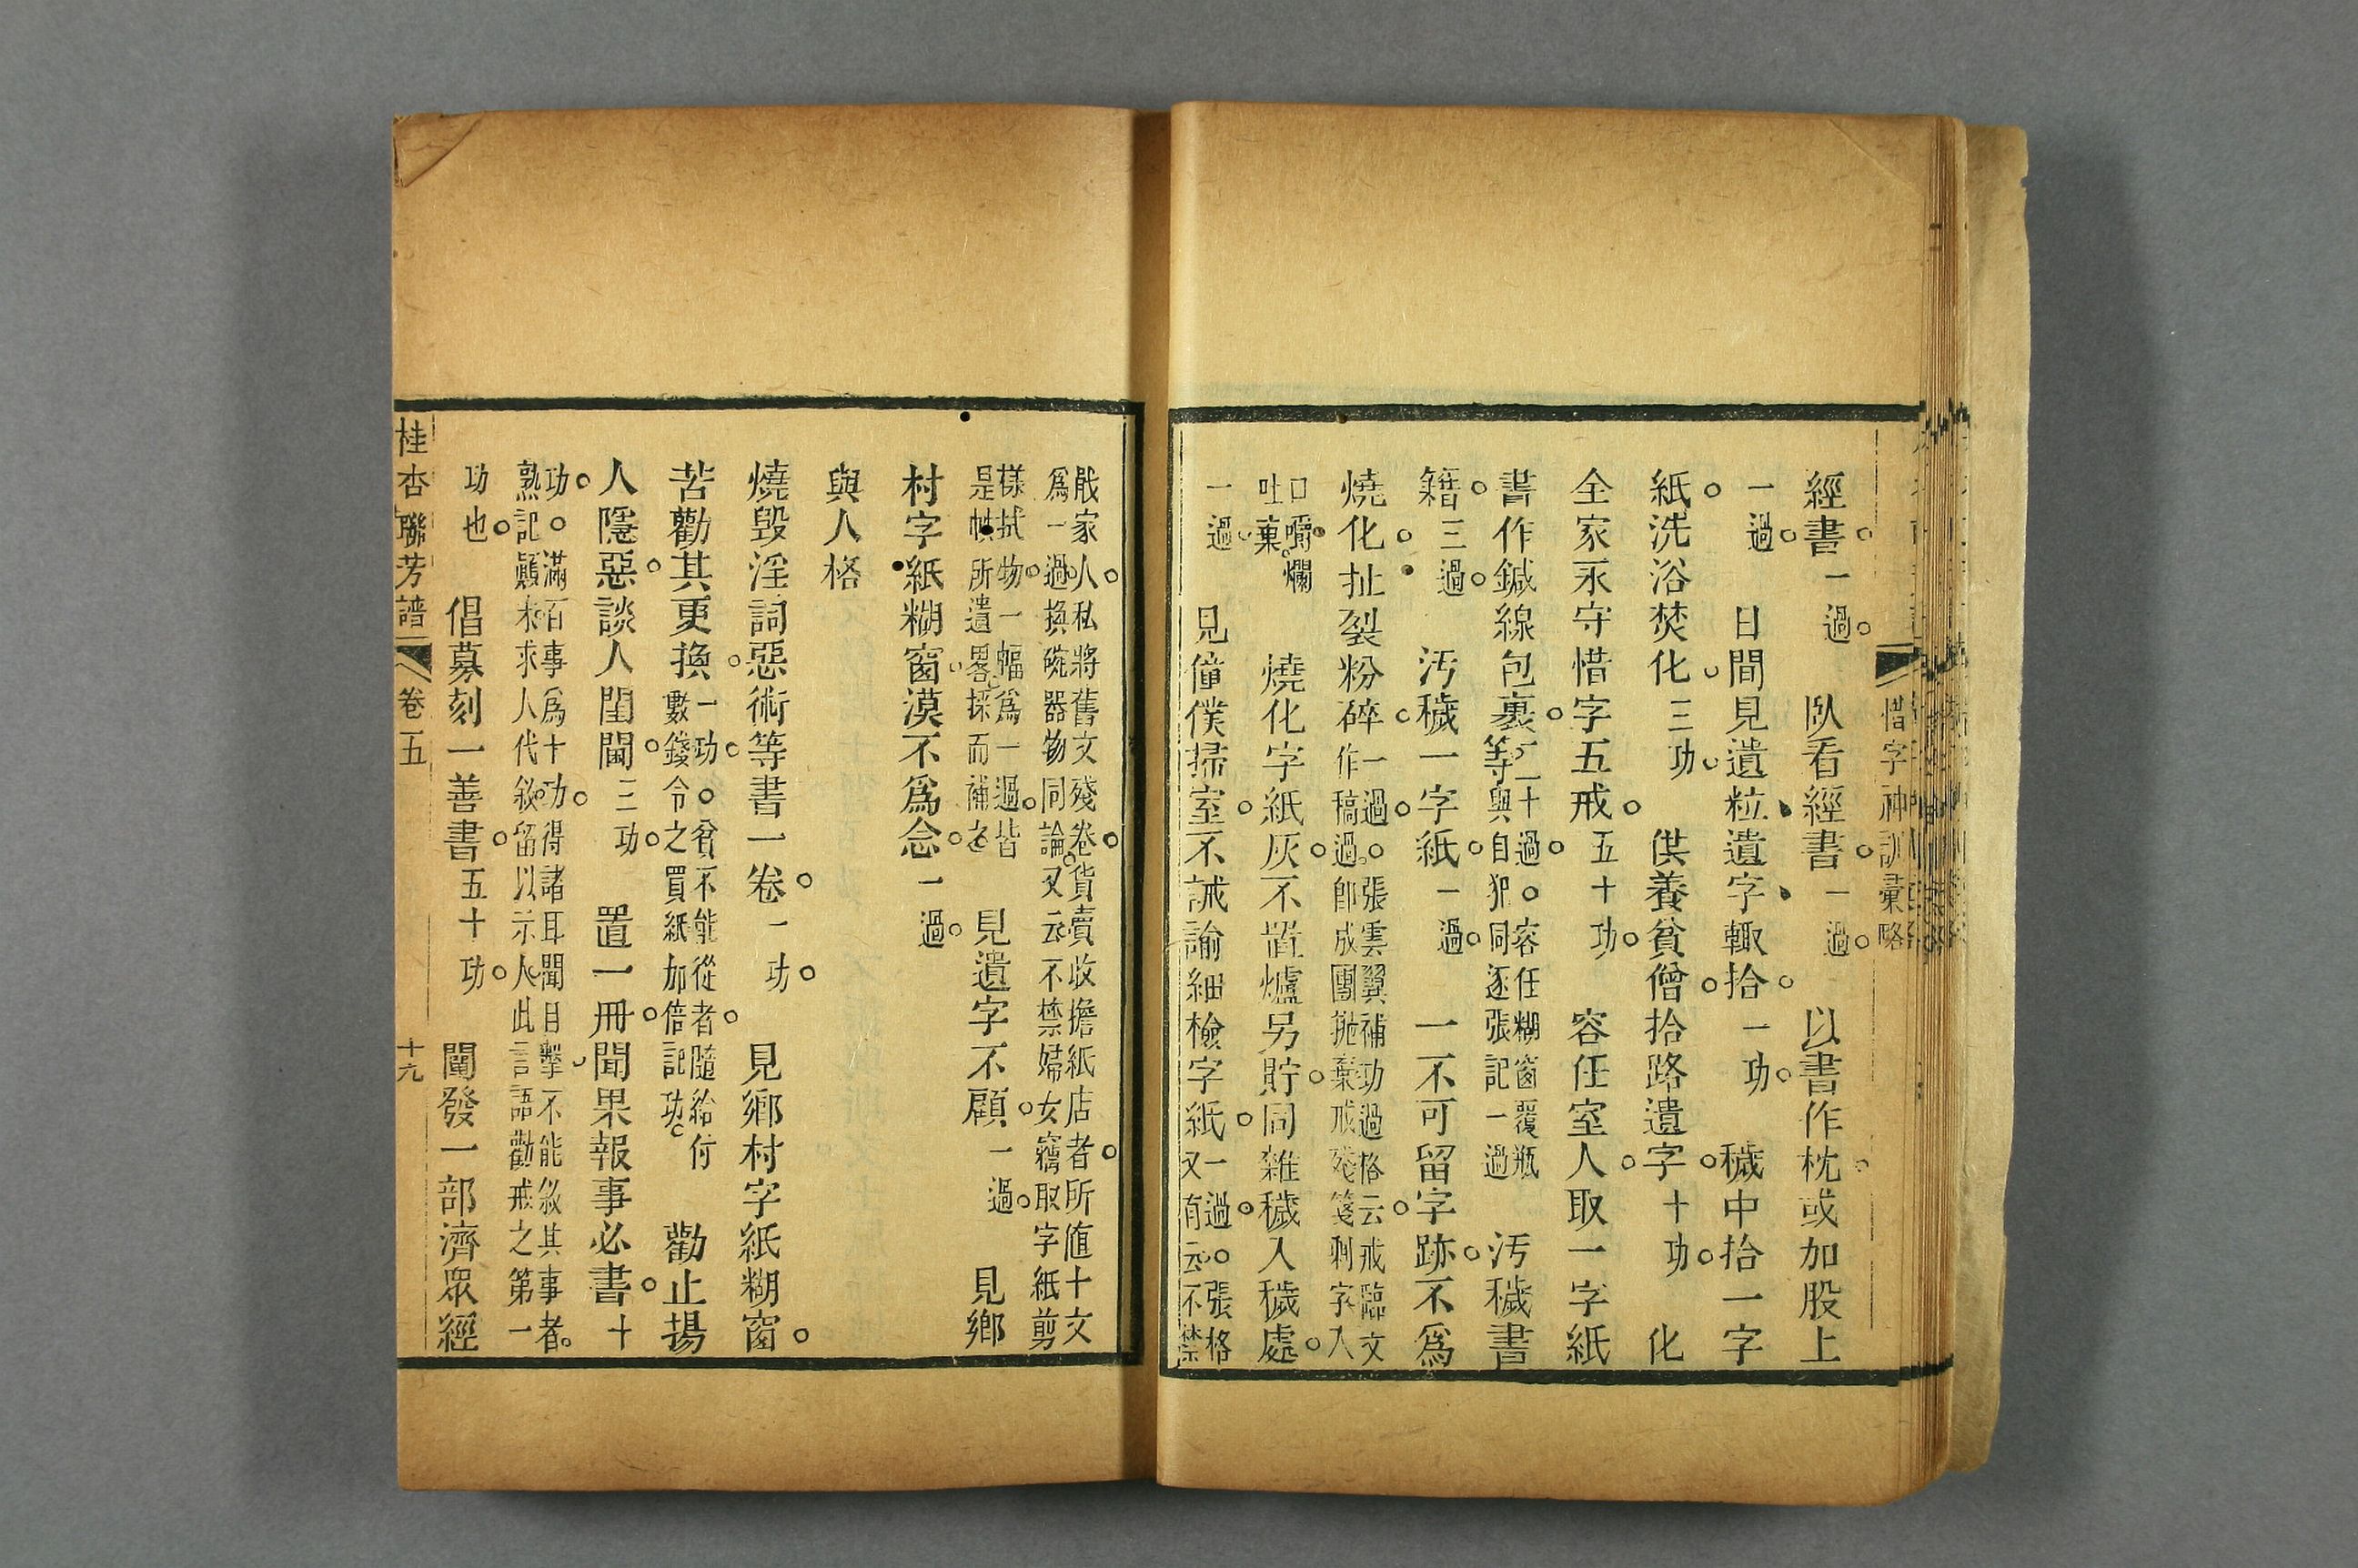 惜字神訓彙略
經書一過　臥看經書一過　以書作枕或加股上
一過　日間見遺粒遺字輙拾一功　穢中拾一字
紙洗浴焚化三功　供養貧僧拾路遺字十功　化
全家永守惜字五戒五十功　容任室人取一字紙
書作鍼線包裹等二十過。容任糊窗覆瓶
與自犯同逐張記一過　汚穢書
籍三過　汚穢一字紙一過　一不可留字跡不爲
燒化扯裂粉碎一過。張雲翼補功過格云戒臨文
作稿過卽成團抛棄戒殘箋剩字入
口嚼爛
吐棄　燒化字紙灰不置爐另貯同雜穢入穢處
一過　見僮僕掃室不誡諭細檢字紙一過。張格
又有云不禁
戲家人私將舊文殘卷貨賣收擔紙店者所值十文
爲一過換碗器物同論又云不禁婦女竊取字紙剪
樣拭物一幅爲一過皆
是帙所遺畧採而補之　見遺字不顧一過　見鄉
村字紙糊窗漠不爲念一過
與人格
燒毁淫詞惡術等書一卷一功　見鄉村字紙糊窗
苦勸其更換一功。貧不能從者隨給付
數錢令之買紙加倍記功　勸止揚
人隱惡談人閨閫三功　置一冊聞果報事必書十
功。滿百事爲十功得諸耳聞目擊不能敘其事者
熟記顚末求人代敘留以示人此言語勸戒之第一
功也　倡募刻一善書五十功　闡發一部濟眾經
桂杏聯芳譜　卷五　十九